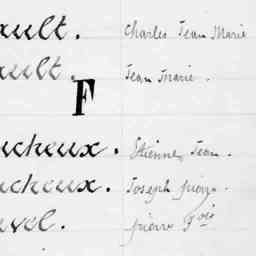 ault. Charles Jean Marie
ault. Jean Marie.
F
ucheux. Etienne Jean.
ucheux. Joseph pierre.
evel. pierre F.ois